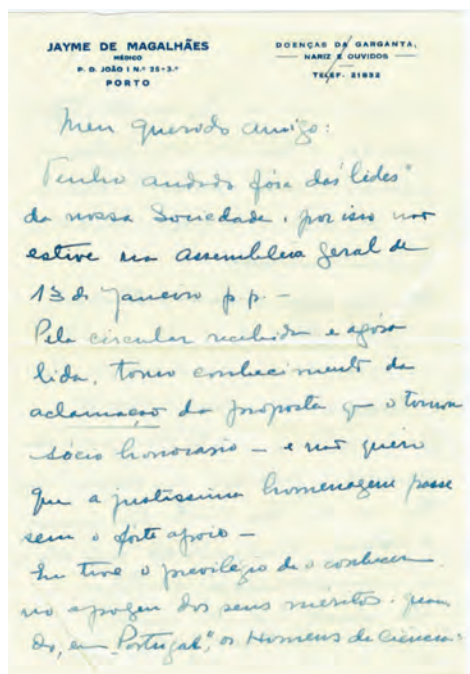 JAYME DE MAGALHÃES
MÉDICO
P. D. JOÃO I N.º 25-3.º
PORTO
DOENÇAS DA GARGANTA,
NARIZ E OUVIDOS
TELEF. 21832
Meu querido amigo:
Tenho andado fóra das "lides"
da nossa Sociedade, por isso não
estive na Assembleia Geral de
13 de Janeiro p. p. —
Pela circular recebida e agora
lida, tomo conhecimento da
aclamação da proposta que o tornou
sócio honorário — e não quero
que a justíssima homenagem passe
sem o forte apoio —
Eu tive o previlégio de o conhecer
no apogeu dos seus méritos, quan
do, em "Portugal", os Homens de ciência